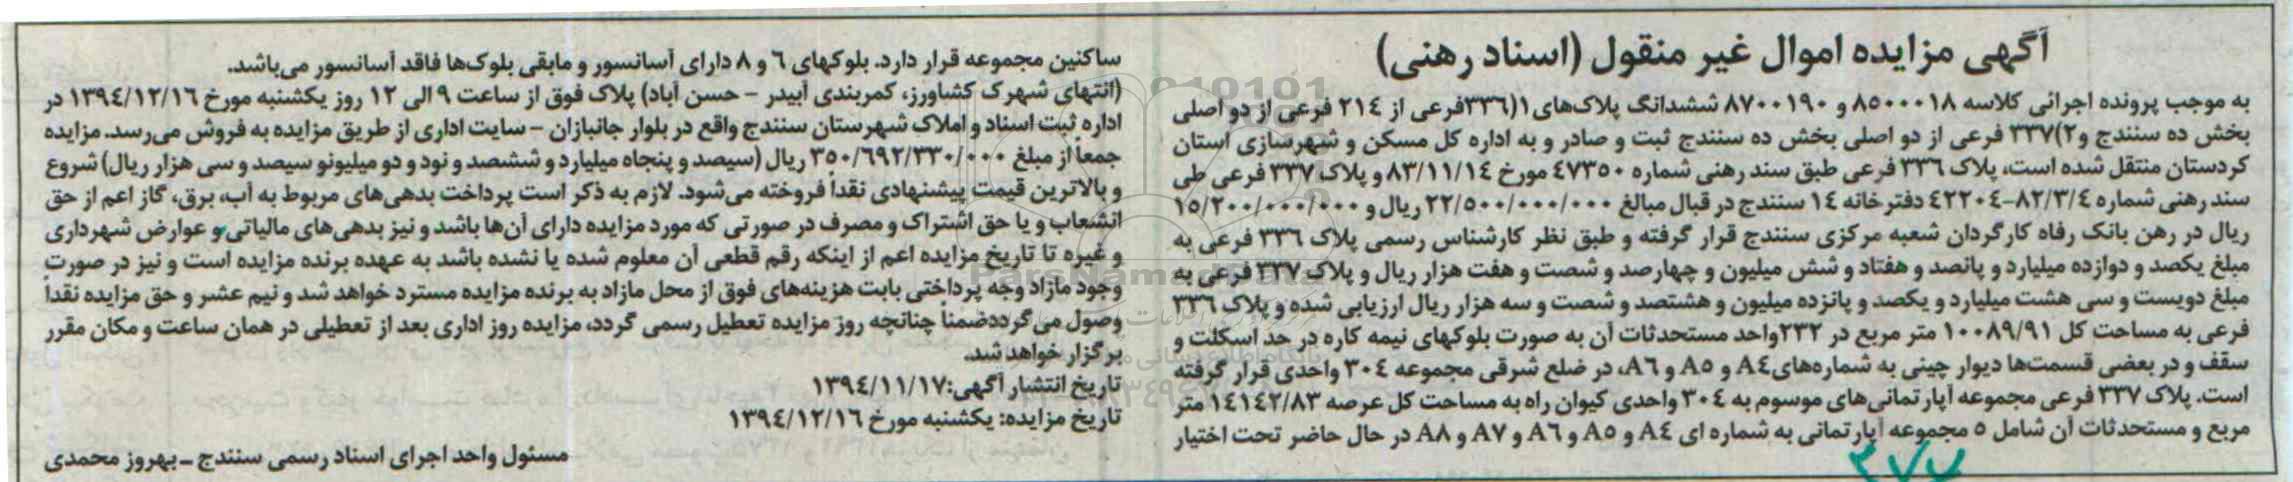 آگهی مزایده اموال غیر منقول (اسناد رهنی)
به موجب پرونده اجرائی کلاسه ۸۵۰۰۰۱۸ و ۸۷۰۰۱۹۰ ششدانگ پلاک‌های ۱(۳۳٦فرعی از ۲۱٤ فرعی از دو اصلی
بخش ده سنندج و۲)۳۳۷ فرعی از دو اصلی بخش ده سنندج ثبت و صادر و به اداره کل مسکن و شهرسازی استان
کردستان منتقل شده است، پلاک ۳۳٦ فرعی طبق سند رهنی شماره ٤۷۳۵۰ مورخ ۸۳/۱۱/۱٤ و پلاک ۳۳۷ فرعی طی
سند رهنی شماره ۸۲/۳/٤-٤۲۲۰٤ دفترخانه ۱٤ سنندج در قبال مبالغ ۲۲/۵۰۰/۰۰۰/۰۰۰ ریال و ۱۵/۲۰۰/۰۰۰/۰۰۰
ریال در رهن بانک رفاه کارگردان شعبه مرکزی سنندج قرار گرفته و طبق نظر کارشناس رسمی پلاک ۳۳٦ فرعی به
مبلغ یکصد و دوازده میلیارد و پانصد و هفتاد و شش میلیون و چهارصد و شصت و هفت هزار ریال و پلاک ۳۳۷ فرعی به
مبلغ دویست و سی هشت میلیارد و یکصد و پانزده میلیون و هشتصد و شصت و سه هزار ریال ارزیابی شده و پلاک ۳۳٦
فرعی به مساحت کل ۱۰۰۸۹/۹۱ متر مربع در ۲۳۲واحد مستحدثات آن به صورت بلوکهای نیمه کاره در حد اسکلت و
سقف و در بعضی قسمت‌ها دیوار چینی به شماره‌های A٤ و A۵ و A٦، در ضلع شرقی مجموعه ۳۰٤ واحدی قرار گرفته
است. پلاک ۳۳۷ فرعی مجموعه آپارتمانی‌های موسوم به ۳۰٤ واحدی کیوان راه به مساحت کل عرصه ۱٤۱٤۲/۸۳ متر
مربع و مستحدثات آن شامل ۵ مجموعه آپارتمانی به شماره ای A٤ و A۵ و A٦ و A۷ و A۸ در حال حاضر تحت اختیار
ساکنین مجموعه قرار دارد. بلوکهای ٦ و ۸ دارای آسانسور و مابقی بلوک‌ها فاقد آسانسور می‌باشد.
(انتهای شهرک کشاورز، کمربندی آبیدر - حسن آباد) پلاک فوق از ساعت ۹ الی ۱۲ روز یکشنبه مورخ ۱۳۹٤/۱۲/۱٦ در
اداره ثبت اسناد و املاک شهرستان سنندج واقع در بلوار جانبازان - سایت اداری از طریق مزایده به فروش می‌رسد. مزایده
جمعاً از مبلغ ۳۵۰/۶۹۲/۳۳۰/۰۰۰ ریال (سیصد و پنجاه میلیارد و ششصد و نود و دو میلیونو سیصد و سی هزار ریال) شروع
و بالاترین قیمت پیشنهادی نقداً فروخته می‌شود. لازم به ذکر است پرداخت بدهی‌های مربوط به آب، برق، گاز اعم از حق
انشعاب و یا حق اشتراک و مصرف در صورتی که مورد مزایده دارای آن‌ها باشد و نیز بدهی‌های مالیاتی و عوارض شهرداری
و غیره تا تاریخ مزایده اعم از اینکه رقم قطعی آن معلوم شده یا نشده باشد به عهده برنده مزایده است و نیز در صورت
وجود مازاد وجه پرداختی بابت هزینه‌های فوق از محل مازاد به برنده مزایده مسترد خواهد شد و نیم عشر و حق مزایده نقداً
وصول می گرددضمناً چنانچه روز مزایده تعطیل رسمی گردد، مزایده روز اداری بعد از تعطیلی در همان ساعت و مکان مقرر
برگزار خواهد شد.
تاریخ انتشار آگهی:۱۳۹٤/۱۱/۱۷
تاریخ مزایده: یکشنبه مورخ ۱۳۹٤/۱۲/۱٦
مسئول واحد اجرای اسناد رسمی سنندج ـ بهروز محمدی
ParsNamadData